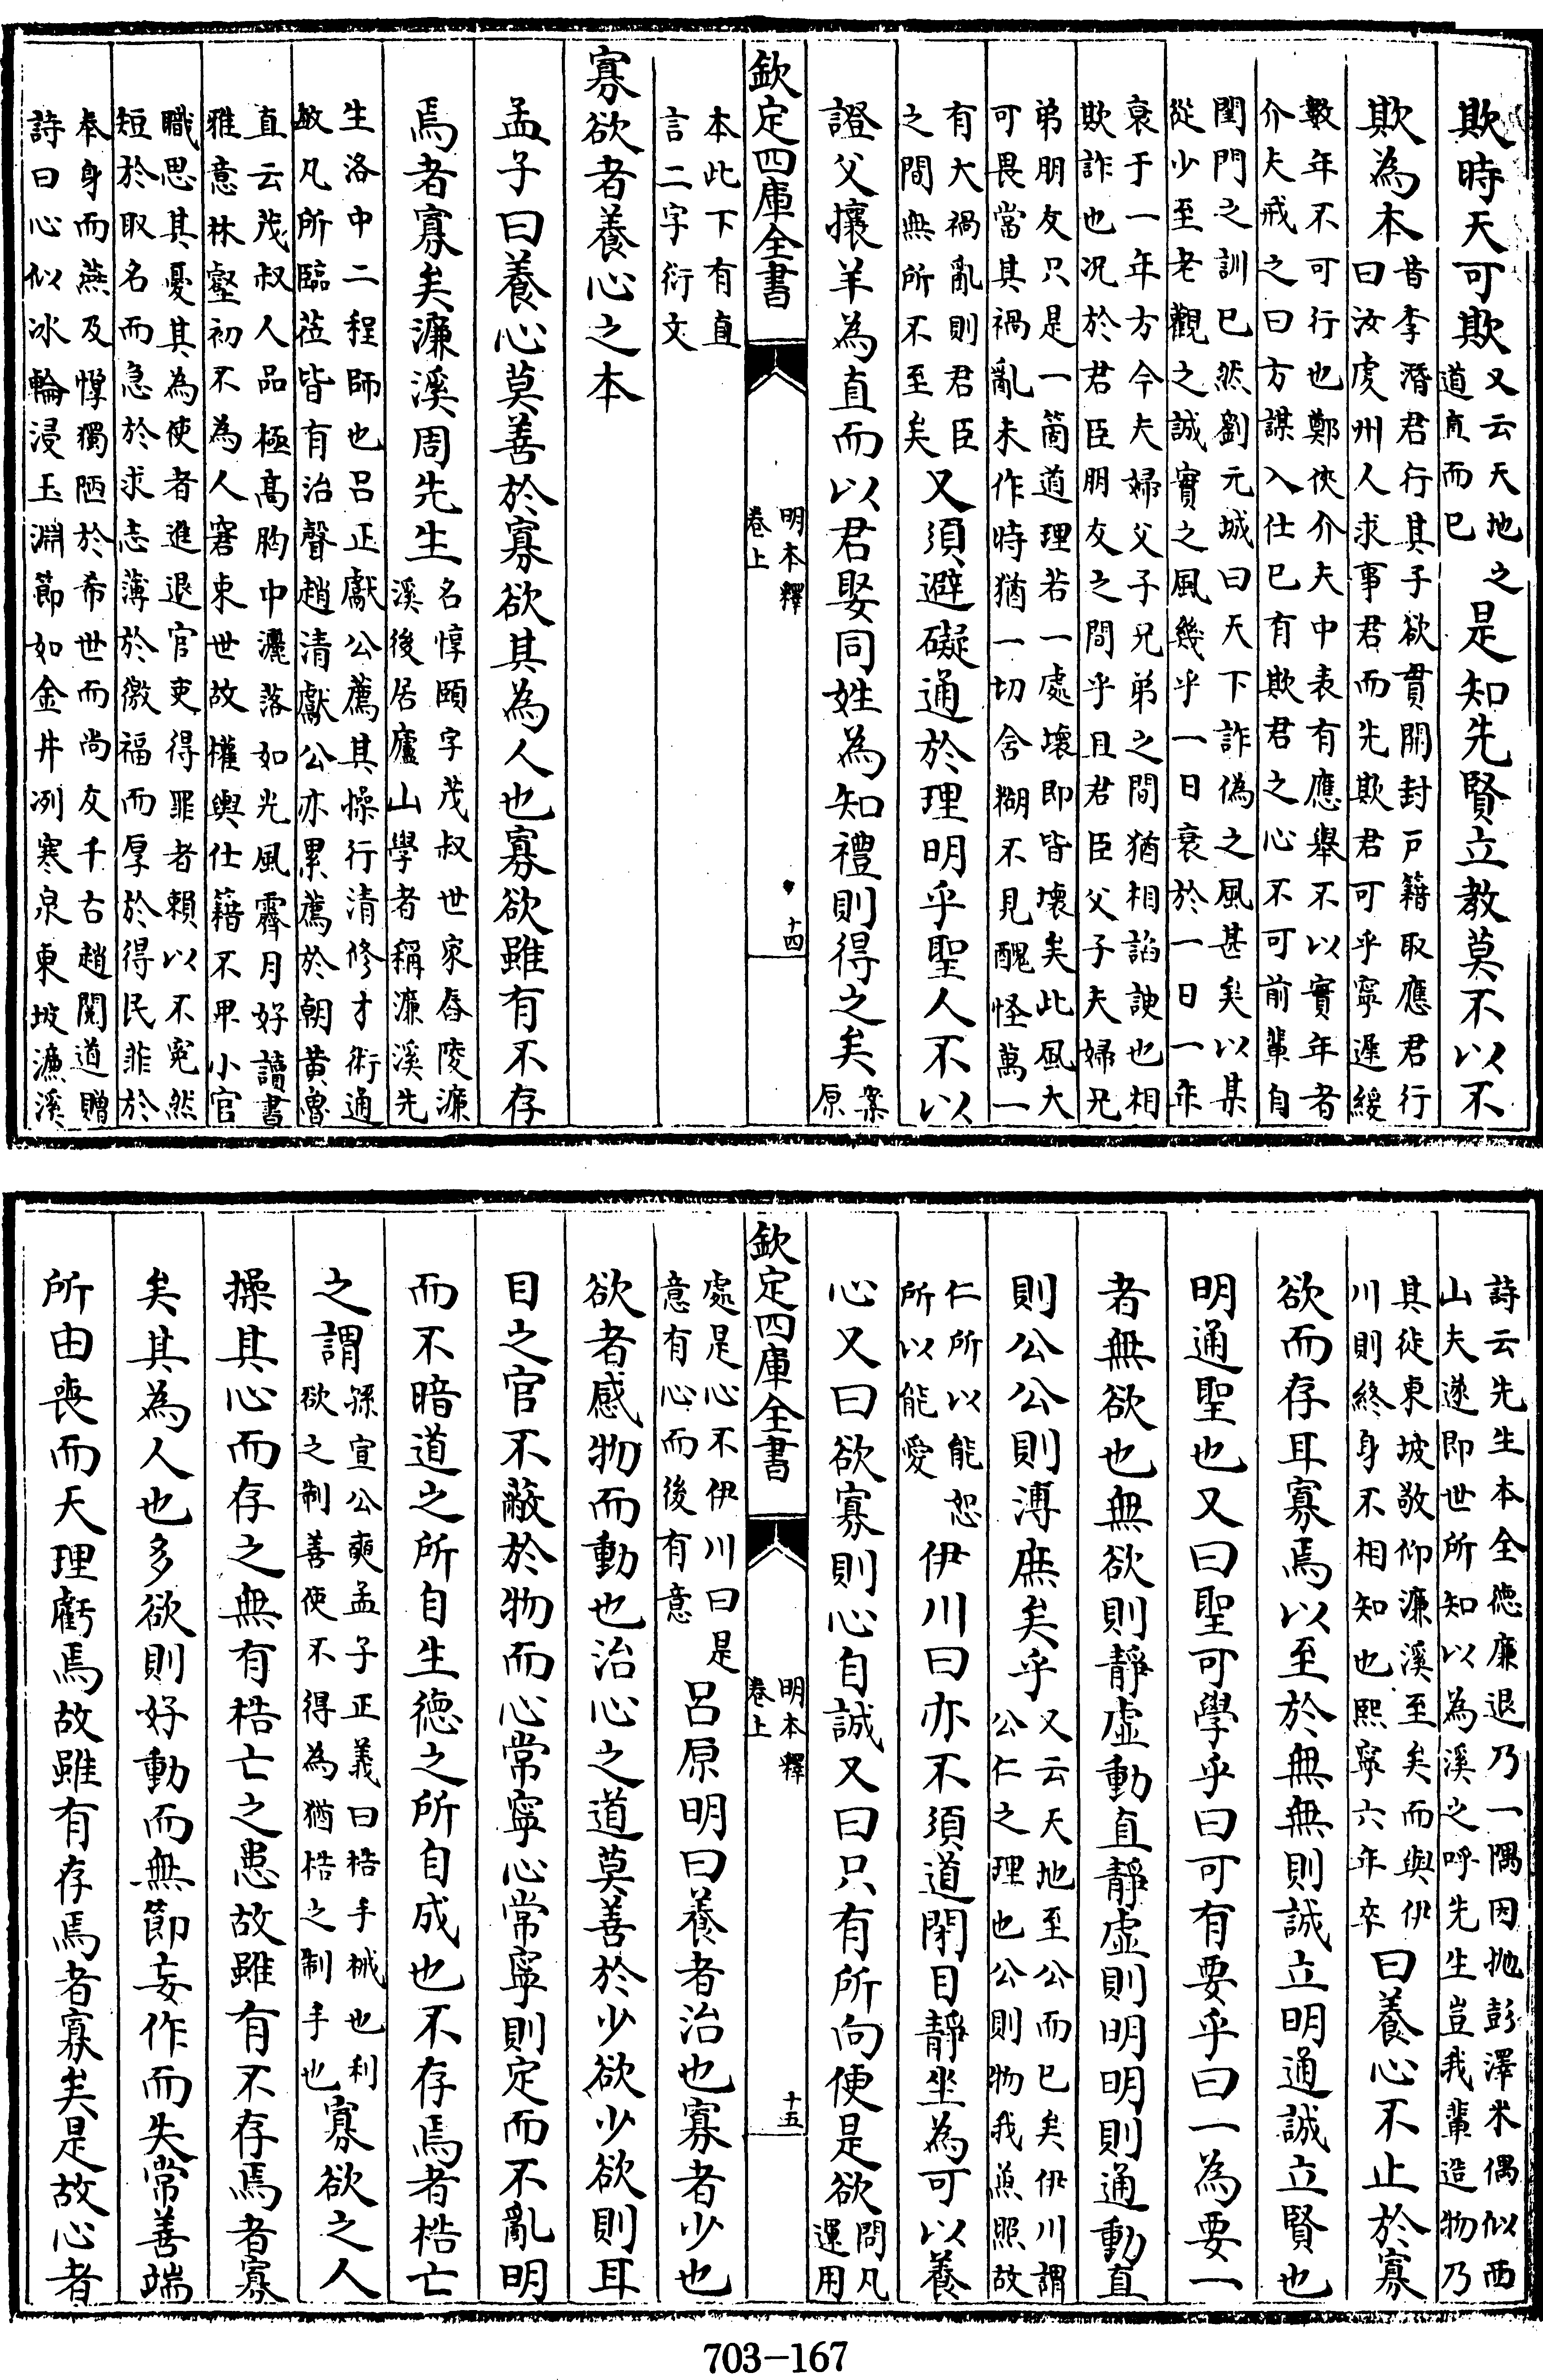 欺時天可欺又云天地之道直而已是知先賢立教莫不以不
欺為本昔李潛君行其子欲貫開封戶籍取應君行曰汝䖍州人求事君而先欺君可乎寧遲緩
數年不可行也鄭俠介夫中表有應舉不以實年者介夫戒之曰方謀入仕已有欺君之心不可前輩自
閨門之訓已然劉元城曰天下詐偽之風甚矣以某從少至老觀之誠實之風幾乎一日衰於一日一年
衰于一年方今夫婦父子兄弟之間猶相諂諛也相欺詐也況於君臣朋友之間乎且君臣父子夫婦兄
弟朋友只是一箇道理若一處壞即皆壞矣此風大可畏當其禍亂未作時猶一切含糊不見醜怪萬一
有大禍亂則君臣之間無所不至矣又須避礙通於理明乎聖人不以
證父攘羊為直而以君娶同姓為知禮則得之矣案原
欽定四庫全書
明本釋
卷上
十四
本此下有直言二字衍文
寡欲者養心之本
孟子曰養心莫善於寡欲其為人也寡欲雖有不存
焉者寡矣濂溪周先生名惇頤字茂叔世家舂陵濂溪後居廬山學者稱濂溪先
生洛中二程師也呂正獻公薦其操行清修才術通敏凡所臨莅皆有治聲趙清獻公亦累薦於朝黃魯
直云茂叔人品極髙胷中灑落如光風霽月好讀書雅意林壑初不為人窘束世故權輿仕籍不卑小官
職思其憂其為使者進退官吏得罪者賴以不寃然短於取名而急於求志薄於徼福而厚於得民菲於
奉身而燕及惸獨陋於希世而尚友千古趙閱道贈詩曰心似冰輪浸玉淵節如金井冽寒泉東坡濂溪
詩云先生本全徳廉退乃一隅因抛彭澤米偶似西山夫遂即世所知以為溪之呼先生豈我輩造物乃
其徒東坡敬仰濂溪至矣而與伊川則終身不相知也熙寧六年卒曰養心不止於寡
欲而存耳寡焉以至於無無則誠立明通誠立賢也
明通聖也又曰聖可學乎曰可有要乎曰一為要一
者無欲也無欲則靜虛動直靜虛則明明則通動直
則公公則溥庶矣乎又云天地至公而已矣伊川謂公仁之理也公則物我兼照故
仁所以能恕所以能愛伊川曰亦不須道閉目靜坐為可以養
心又曰欲寡則心自誠又曰只有所向便是欲問凡運用
欽定四庫全書
明本釋
卷上
十五
處是心不伊川曰是意有心而後有意呂原明曰養者治也寡者少也
欲者感物而動也治心之道莫善於少欲少欲則耳
目之官不蔽於物而心常寧心常寧則定而不亂明
而不暗道之所自生德之所自成也不存焉者梏亡
之謂孫宣公奭孟子正義曰梏手械也利欲之制善使不得為猶梏之制手也寡欲之人
操其心而存之無有梏亡之患故雖有不存焉者寡
矣其為人也多欲則好動而無節妄作而失常善端
所由喪而天理虧焉故雖有存焉者寡矣是故心者
703-167